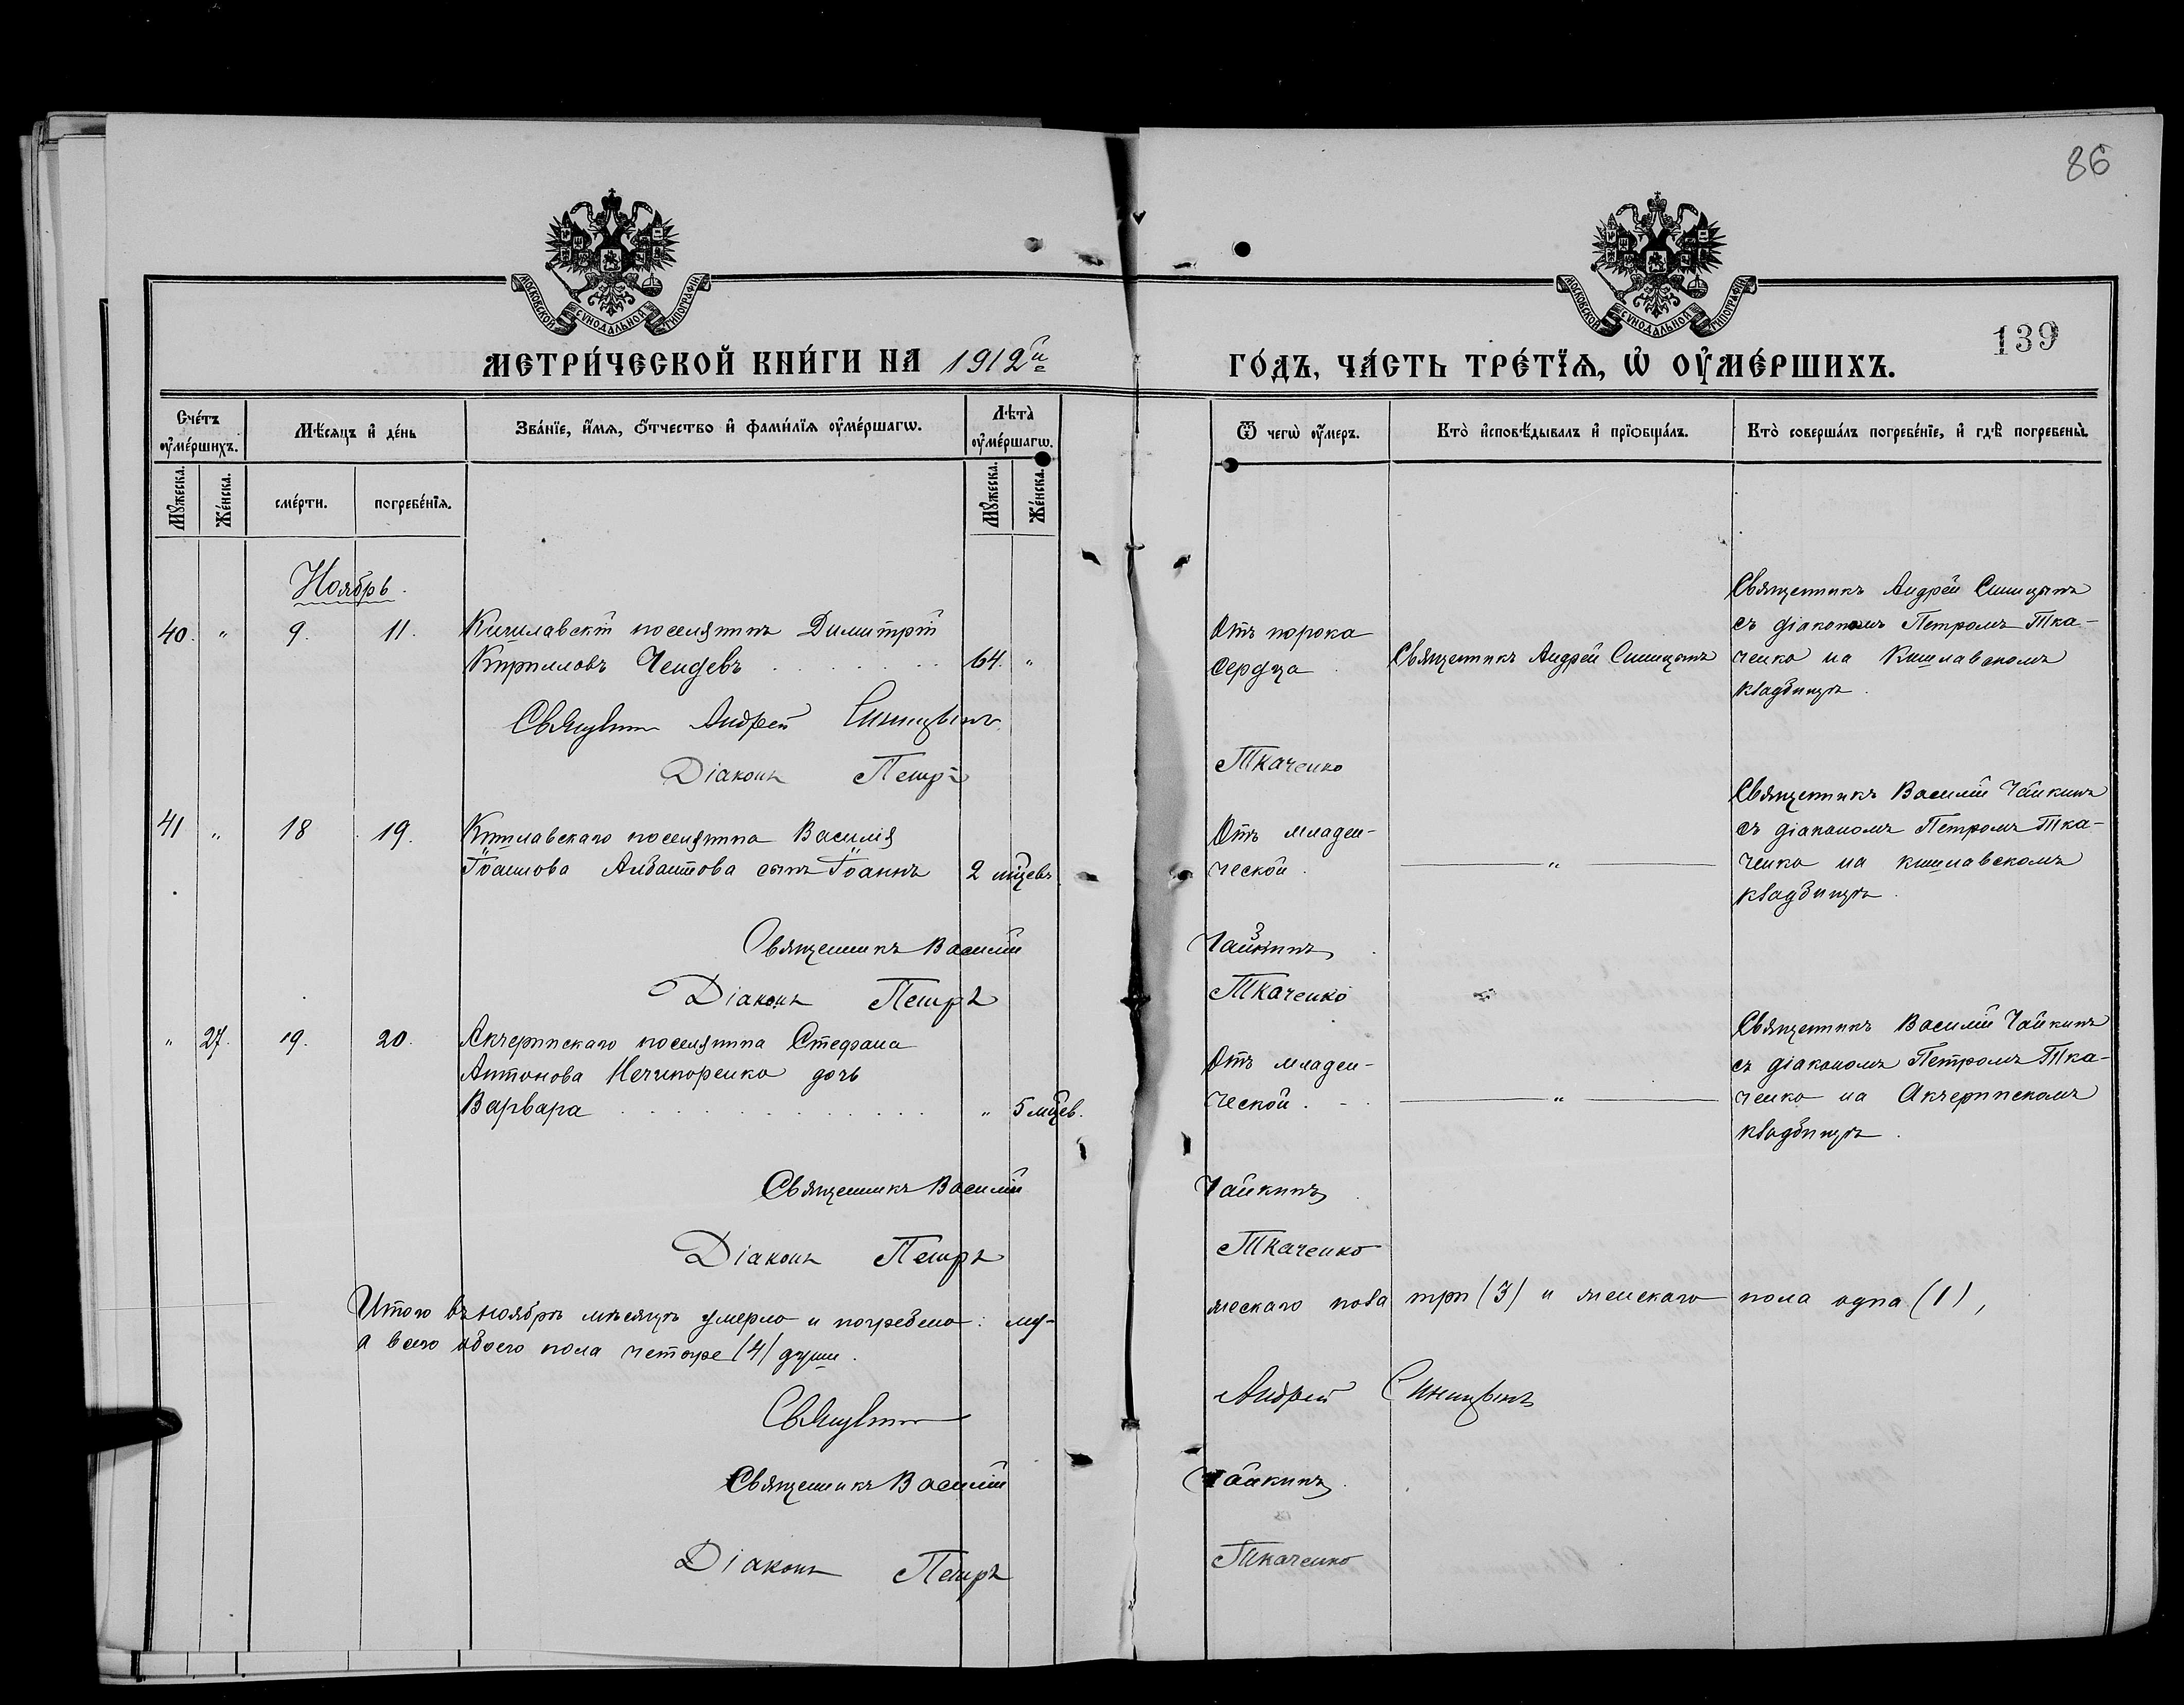 86
МОСКОВСКОЙ СУНОДАЛЬНОЙ ТИПОГРАФІИ
МОСКОВСКОЙ СУНОДАЛЬНОЙ ТИПОГРАФІИ
139
МЕТРИ́ЧЕСКОЙ КНИ́ГИ НА 1912й
ГО́ДЪ, ЧА́СТЬ ТРЕ́ТЇѦ, Ѡ҆ ОУ҆МЕ́РШИХЪ.
Сче́тъ оу҆ме́ршихъ.
Мѣ́сяцъ и҆ де́нь
Зва́нїе, и҆́мѧ, ѻ҆́тчество и҆ фами́лїѧ оу҆ме́ршагѡ.
Лѣ́та оу҆ме́ршагѡ.
Ѿ чегѡ̀ оу҆́меръ.
Кто̀ и҆сповѣ́дывалъ и҆ прїѡбща́лъ.
Кто̀ соверша́лъ погребе́нїе, и҆ гдѣ̀ погребены̀.
Мꙋ́жеска.
Же́нска.
сме́рти.
погребе́нїѧ.
Мꙋ́жеска.
Же́нска.
Ноябрь.
40. " 9. 11. Кишлавскій поселянинъ Димитрій
Кирилловъ Чендевъ 64. "
Отъ порока
сердца
Священникъ Андрей Синицынъ
Священникъ Андрей Синицынъ
съ діакономъ Петромъ Тка-
ченко на Кишлавскомъ
кладбищѣ.
Священник Андрей Синицынъ
Діаконъ Петръ Ткаченко
41 " 18 19. Кишлавскаго поселянина Василія
Іоаннова Албантова сынъ Іоаннъ 2 мѣцевъ
Отъ младен-
ческой.
"
Священникъ Василій Чайкинъ
съ діакономъ Петромъ Тка-
ченко на кишлавскомъ
кладбищѣ.
Священникъ Василій Чайкинъ
Діаконъ Петръ Ткаченко
" 27. 19. 20. Акчеринскаго поселянина Стефана
Антонова Нечипоренко дочь
Варвара " 5 мѣцев.
Отъ младен-
ческой.
"
Священникъ Василій Чайкинъ
съ діакономъ Петромъ Тка-
ченко на Акчеринскомъ
кладбищѣ.
Священникъ Василій Чайкинъ
Діаконъ Петръ Ткаченко
Итого въ ноябрѣ мѣсяцѣ умерло и погребено: му-жескаго пола три (3) и женскаго пола одна (1),
а всего обоего пола четыре (4) души.
Священник Андрей Синицынъ
Священникъ Василій Чайкинъ.
Діаконъ Петръ Ткаченко